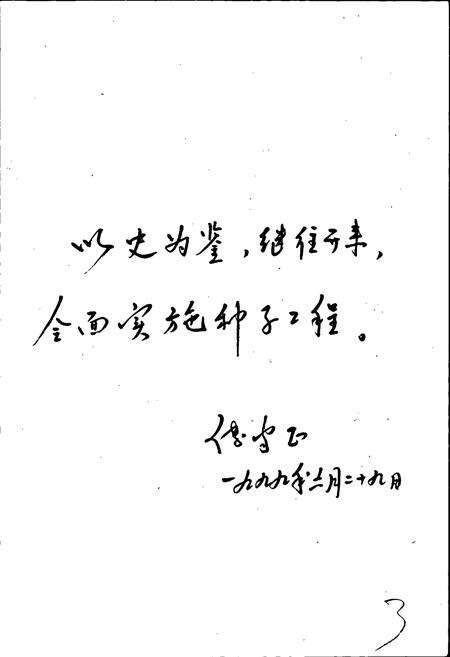 以史为鉴，继往开来，
全面实施种子工程。
傅守正
一九九九年六月二十九日
3